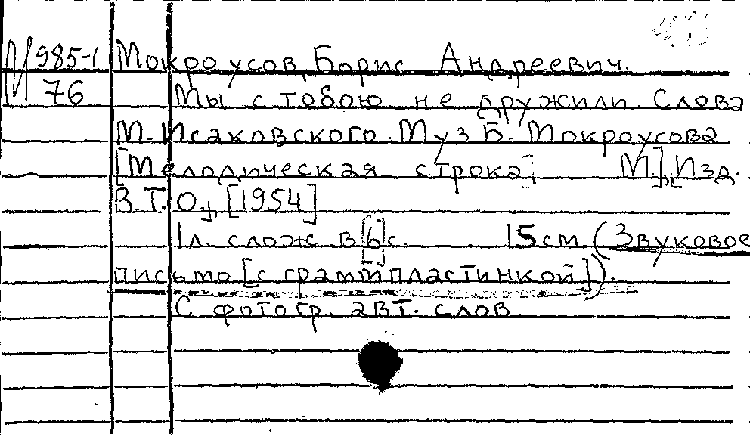 М 985-1 Мокроусов, Борис Андреевич.
76 Мы с тобою не дружили. Слова
М. Исаковского. Муз Б. Мокроусова
[Мелодическая строка; М.], Изд.
В.Т.О., [1954]
1л. слож в [6] с. 15 см (Звуковое
письмо [с грампластинкой]).
С фотогр. авт. слов